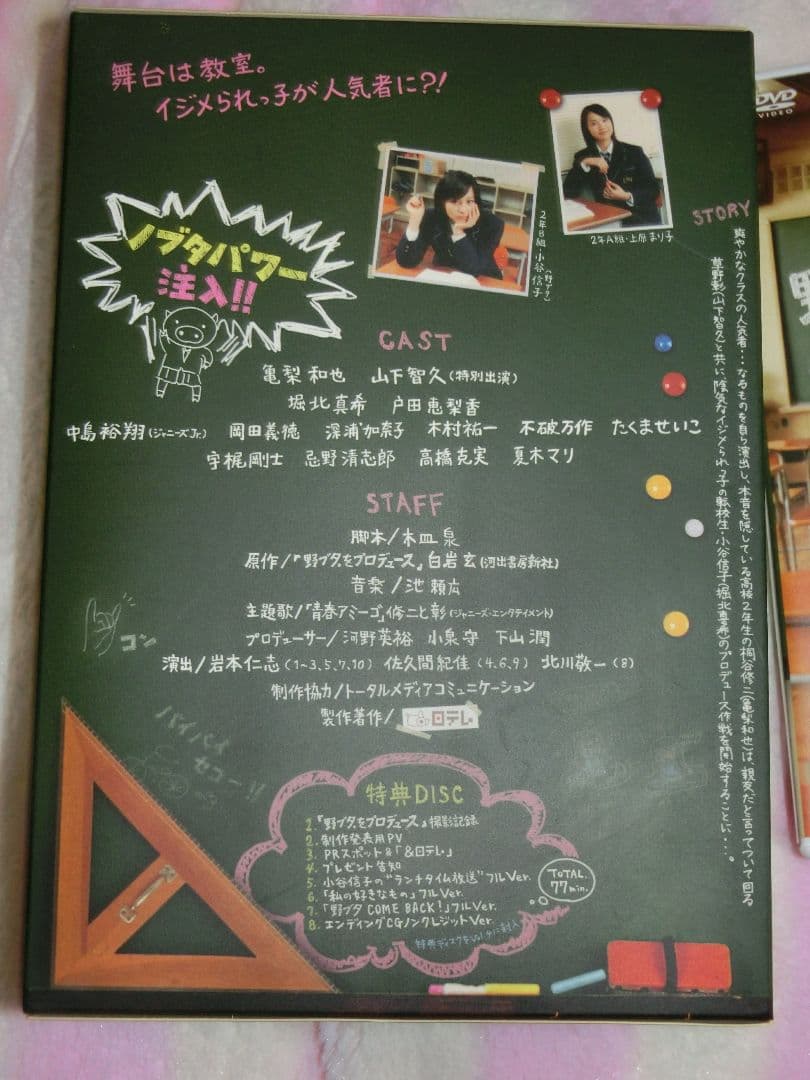 舞台は教室。
イジメられっ子が人気者に?!
DVD
VIDEO
ノブタパワー
注入!!
2年B組・小谷信子(野ブタ)
2年A組・上原まり子
STORY
爽やかなクラスの人気者…なるものを自ら演出し、本音を隠している高校2年生の桐谷修二(亀梨和也)は、親友だと言ってついて回る
草野彰(山下智久)と共に、陰気なイジメられっ子の転校生・小谷信子(堀北真希)のプロデュース作戦を開始することに…。
CAST
亀梨和也 山下智久(特別出演)
堀北真希 戸田恵梨香
中島裕翔(ジャニーズJr.) 岡田義徳 深浦加奈子 木村祐一 不破万作 たくませいこ
宇梶剛士 忌野清志郎 高橋克実 夏木マリ
STAFF
脚本/木皿泉
原作/『野ブタ。をプロデュース』白岩玄(河出書房新社)
音楽/池頼広
主題歌/「青春アミーゴ」修二と彰(ジャニーズ・エンタテイメント)
プロデューサー/河野英裕 小泉守 下山潤
演出/岩本仁志(1~3、5、7、10) 佐久間紀佳(4、6、9) 北川敬一(8)
制作協力/トータルメディアコミュニケーション
製作著作/日テレ
コン
バイバイ
セコーー!!
特典DISC
1.『野ブタ。をプロデュース』撮影記録
2.制作発表用PV
3.PRスポット&「&日テレ」
4.プレゼント告知
5.小谷信子の"ランチタイム放送"フルVer.
6.「私の好きなもの」フルVer.
7.「野ブタ COME BACK!」フルVer.
8.エンディングCGノンクレジットVer.
TOTAL
77min.